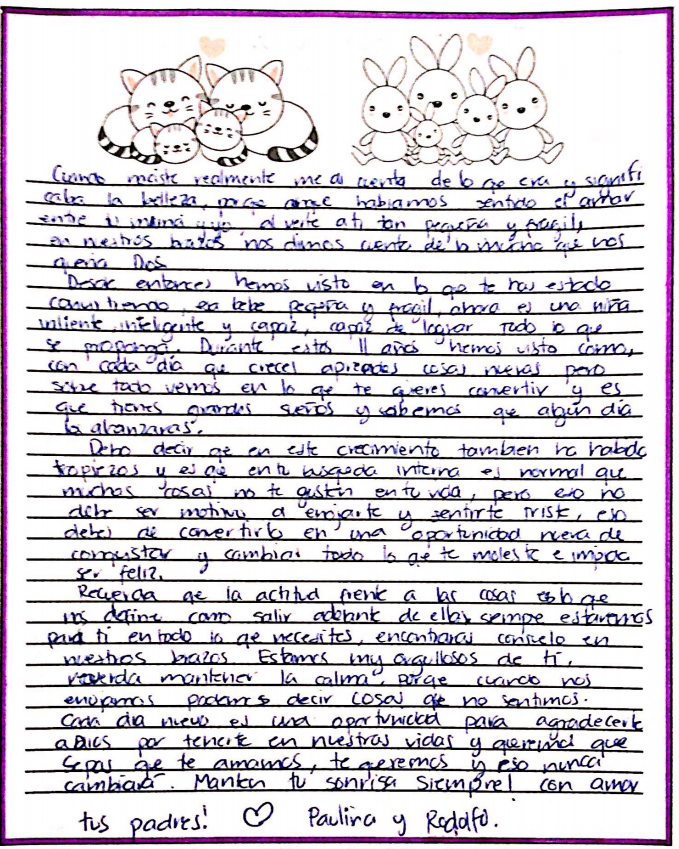 Cuando naciste realmente me di cuenta de lo que era y signifi
caba la belleza, porque aunque habiamos sentido el amor
entre tu mamá y yo, al verte a ti tan pequeña y fragil,
en nuestros brazos nos dimos cuenta de lo mucho que nos
queria Dios
Desde entonces hemos visto en lo que te has estado
convirtiendo, esa bebe pequeña y fragil, ahora es una niña
valiente, inteligente y capaz, capaz de lograr todo lo que
se proponga. Durante estos 11 años hemos visto como,
con cada dia que creces aprendes cosas nuevas pero
sobre todo vemos en lo que te quieres convertir y es
que tienes grandes sueños y sabemos que algún día
lo alcanzaras.
Debo decir que en este crecimiento tambien ha habido
tropiezos y es que en tu busqueda interna es normal que
muchas cosas no te gusten en tu vida, pero eso no
debe ser motivo a enojarte y sentirte triste, eso
debes de convertirlo en una oportunidad nueva de
conquistar y cambiar todo lo que te moleste e impida
ser feliz.
Recuerda que la actitud frente a las cosas es lo que
nos define como salir adelante de ellas, siempre estaremos
para ti en todo lo que necesites, encontraras consuelo en
nuestros brazos. Estamos muy orgullosos de ti,
recuerda mantener la calma, porque cuando nos
enojamos podemos decir cosas que no sentimos.
Cada dia nuevo es una oportunidad para agradecerle
a Dios por tenerte en nuestras vidas y queremos que
sepas que te amamos, te queremos y eso nunca
cambiará. Manten tu sonrisa siempre! con amor
tus padres! ♡ Paulina y Rodolfo.